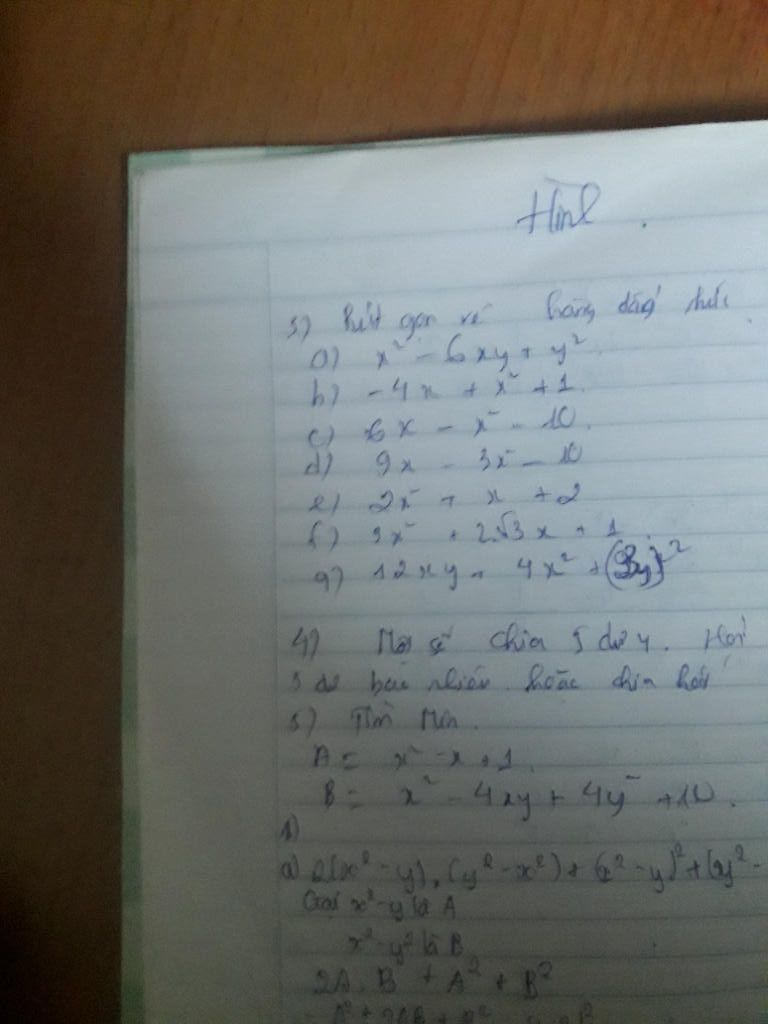 Hình
3) Rút gọn về hằng đẳng thức
a) x² - 6xy + y²
b) -4x + x² + 1
c) 6x - x² - 10
d) 9x - 3x² - 10
e) 2x² + x + 2
f) 3x² + 2√3x + 1
g) 12xy + 4x² + (3y)²
4) Một số chia 5 dư 4. Hỏi
5 dư bao nhiêu hoặc chia hết
5) Tìm Min
A = x² - x + 1
B = x² - 4xy + 4y² + 10.
1)
a) 2(x² - y).(y² - x²) + (x² - y)² + (y² -
Gọi x² - y là A
x² - y² là B
2A.B + A² + B²